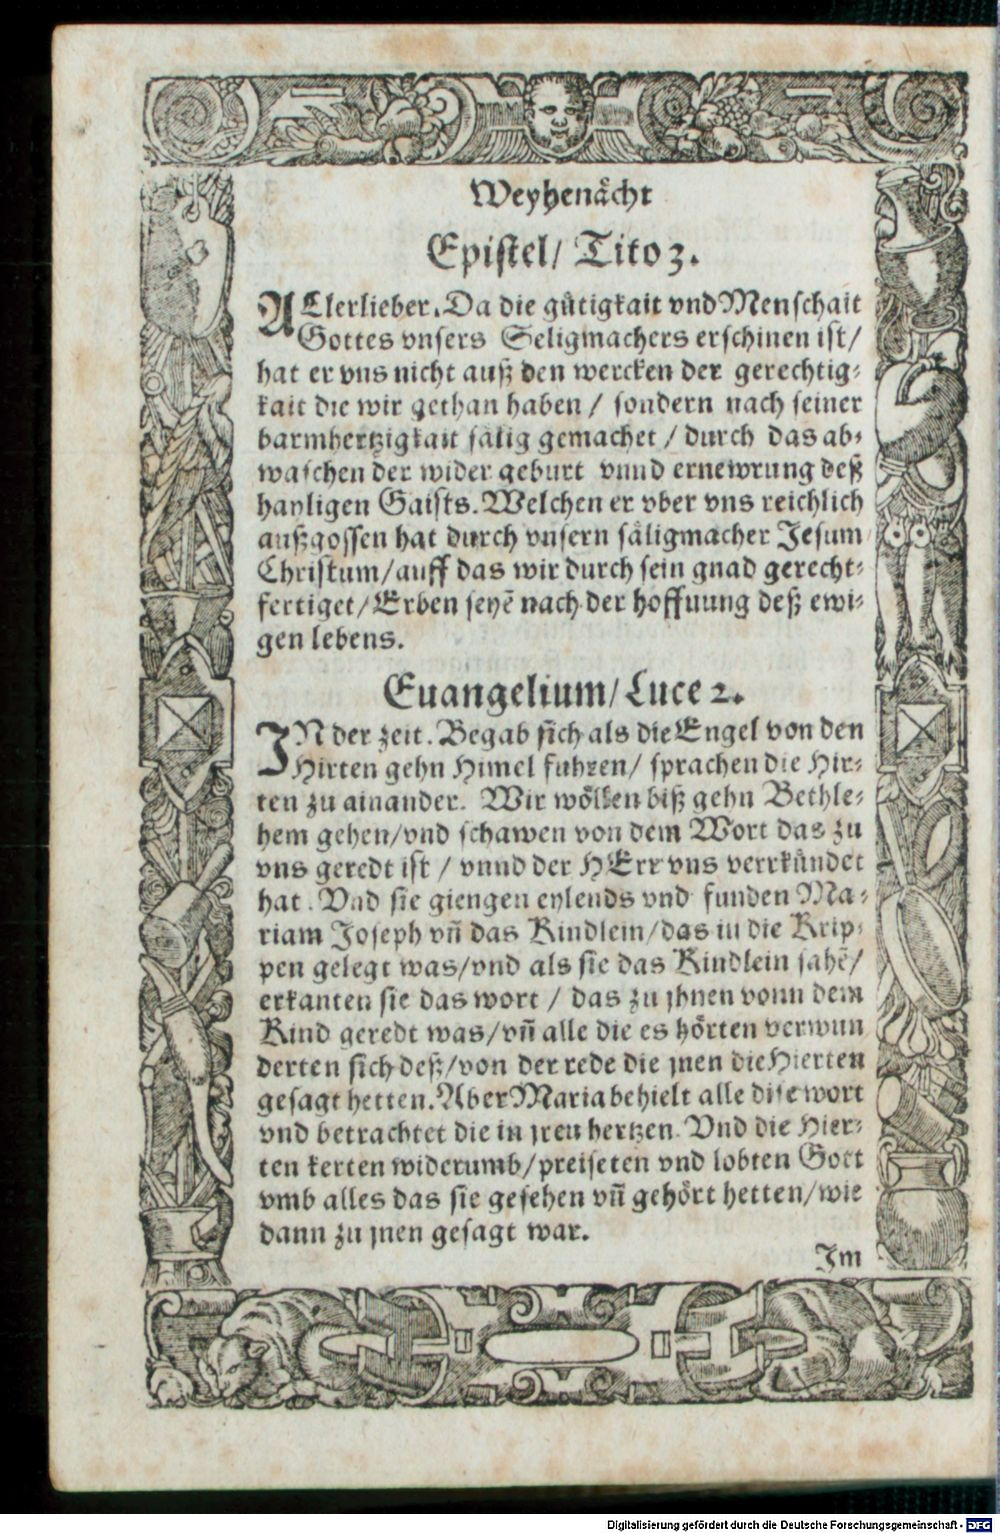 Weyhenächt
Epistel/ Tito 3.
ALlerlieber. Da die gütigkait vnd Menschait
Gottes vnsers Seligmachers erschinen ist/
hat er vns nicht auß den wercken der gerechtig-
kait die wir gethan haben / sondern nach seiner
barmhertzigkait sälig gemachet / durch das ab-
waschen der wider geburt vnnd ernewrung deß
hayligen Gaists. Welchen er vber vns reichlich
außgossen hat durch vnsern säligmacher Jesum
Christum/auff das wir durch sein gnad gerecht-
fertiget/Erben seyē nach der hoffnung deß ewi-
gen lebens.
Euangelium/Luce 2.
IN der zeit. Begab sich als die Engel von den
Hirten gehn Himel fuhren/ sprachen die Hir-
ten zu ainander. Wir wöllen biß gehn Bethle-
hem gehen/vnd schawen von dem Wort das zu
vns geredt ist / vnnd der HErr vns verrkündet
hat. Vnd sie giengen eylends vnd funden Ma-
riam Joseph vn̄ das Kindlein/das in die Krip-
pen gelegt was/vnd als sie das Kindlein sahē/
erkanten sie das wort / das zu jhnen vonn dem
Kind geredt was/vn̄ alle die es hörten verwun
derten sich deß/von der rede die jnen die Hierten
gesagt hetten. Aber Maria behielt alle dise wort
vnd betrachtet die in jren hertzen. Vnd die Hier-
ten kerten widerumb/preiseten vnd lobten Gott
vmb alles das sie gesehen vn̄ gehört hetten/wie
dann zu jnen gesagt war.
Im
Digitalisierung gefördert durch die Deutsche Forschungsgemeinschaft - DFG